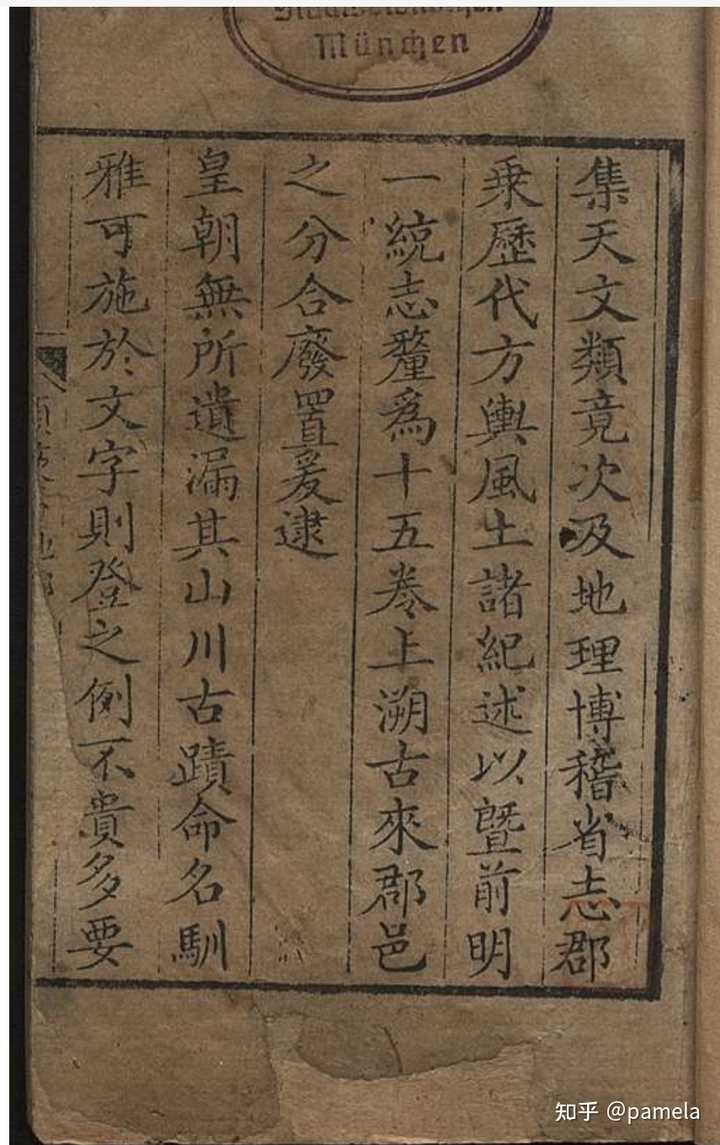 München
集天文類竟次及地理博稽省志郡
乘歷代方輿風土諸紀述以暨前明
一統志釐為十五卷上溯古來郡邑
之分合廢置爰逮
皇朝無所遺漏其山川古蹟命名馴
雅可施於文字則登之例不貴多要
知乎 @pamela